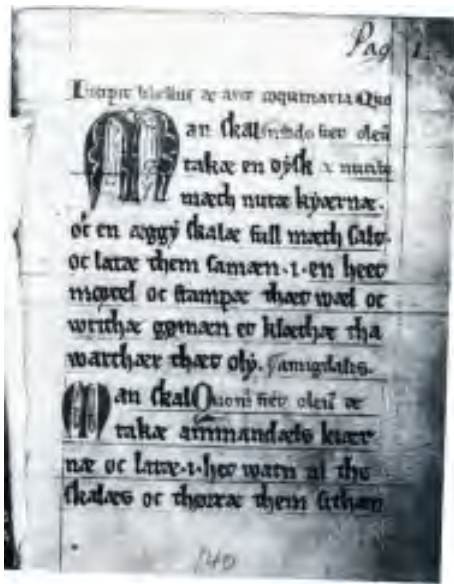 Pag 1.
Incipit libellus de arte coquinaria Quo
Man skal modo fiet oleū
takæ en dysk de nucib
mæth nutæ kyærnæ.
oc en æggy skalæ full mæth salt.
oc latæ them samæn .i. en heet
mortel oc stampæ thær wæl oc
writhæ gømæn et klæthæ tha
warthær thær oly. amigdalis.
Man skal Quomō fiet oleū de
takæ ammandæls kiær
næ oc latæ .i. heet watn at the
skalæs oc thørræ them sithæn
140